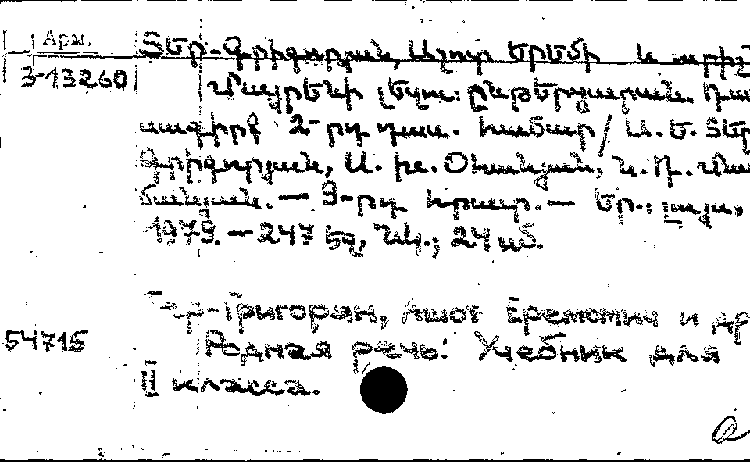 Арм.
Տեր-Գրիգորյան, Աշոտ Երեմի և ուրիշ
3-13260
Մայրենի լեզու: Ընթերցարան. Դաս
ագիրք 2-րդ դաս. համար/ Ա. Ե. Տեր
Գրիգորյան, Ա. Խ. Օհանյան, Ն. Ղ.
ճանյան. — 9-րդ հրատ. — Եր.: Լույս,
1979. — 247 էջ, նկ.; 24 սմ.
Тер-Григорян, Ашот Еремович и др
54715
Родная речь: Учебник для
II класса.